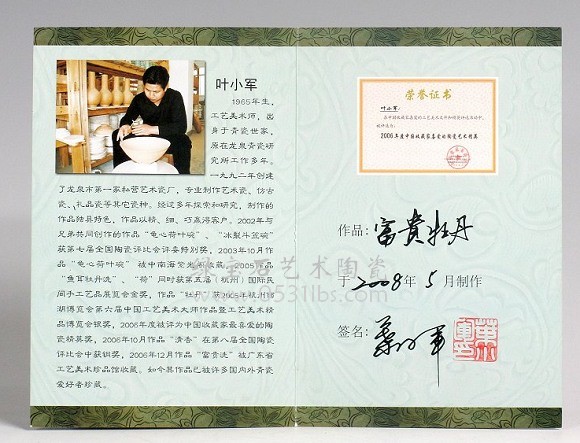 叶小军
1965年生，
工艺美术师，出
身于青瓷世家，
原在龙泉青瓷研
究所工作多年。
一九九二年创建
了龙泉市第一家私营艺术瓷厂，专业制作艺术瓷、仿古
瓷、礼品瓷等其它瓷种。经过多年探索和研究，制作的
作品独具特色，作品以精、细、巧赢得客户。2002年与
兄弟共同创作的作品“龟心荷叶碗”、“冰裂斗笠碗”
获第七届全国陶瓷评比会评委特别奖，2003年10月作
品“龟心荷叶碗”被中南海紫光阁收藏。2005年作品
“鱼耳牡丹洗”、“荷”同时获第五届（杭州）国际民
间手工艺品展览会金奖，作品“牡丹”获2005年杭州西
湖博览会第六届中国工艺美术大师作品暨工艺美术精
品博览会银奖，2006年度被评为中国收藏家最喜爱的陶
瓷精英奖，2006年10月作品“清香”在第八届全国陶瓷
评比会中获铜奖，2006年12月作品“富贵洗”被广东省
工艺美术珍品馆收藏。如今其作品已被许多国内外青瓷
爱好者珍藏。
荣誉证书
叶小军：
2006年度中国收藏家喜爱的陶瓷艺术精英
作品：富貴牡丹
于2008年5月制作
签名：葉小軍
艺术陶瓷